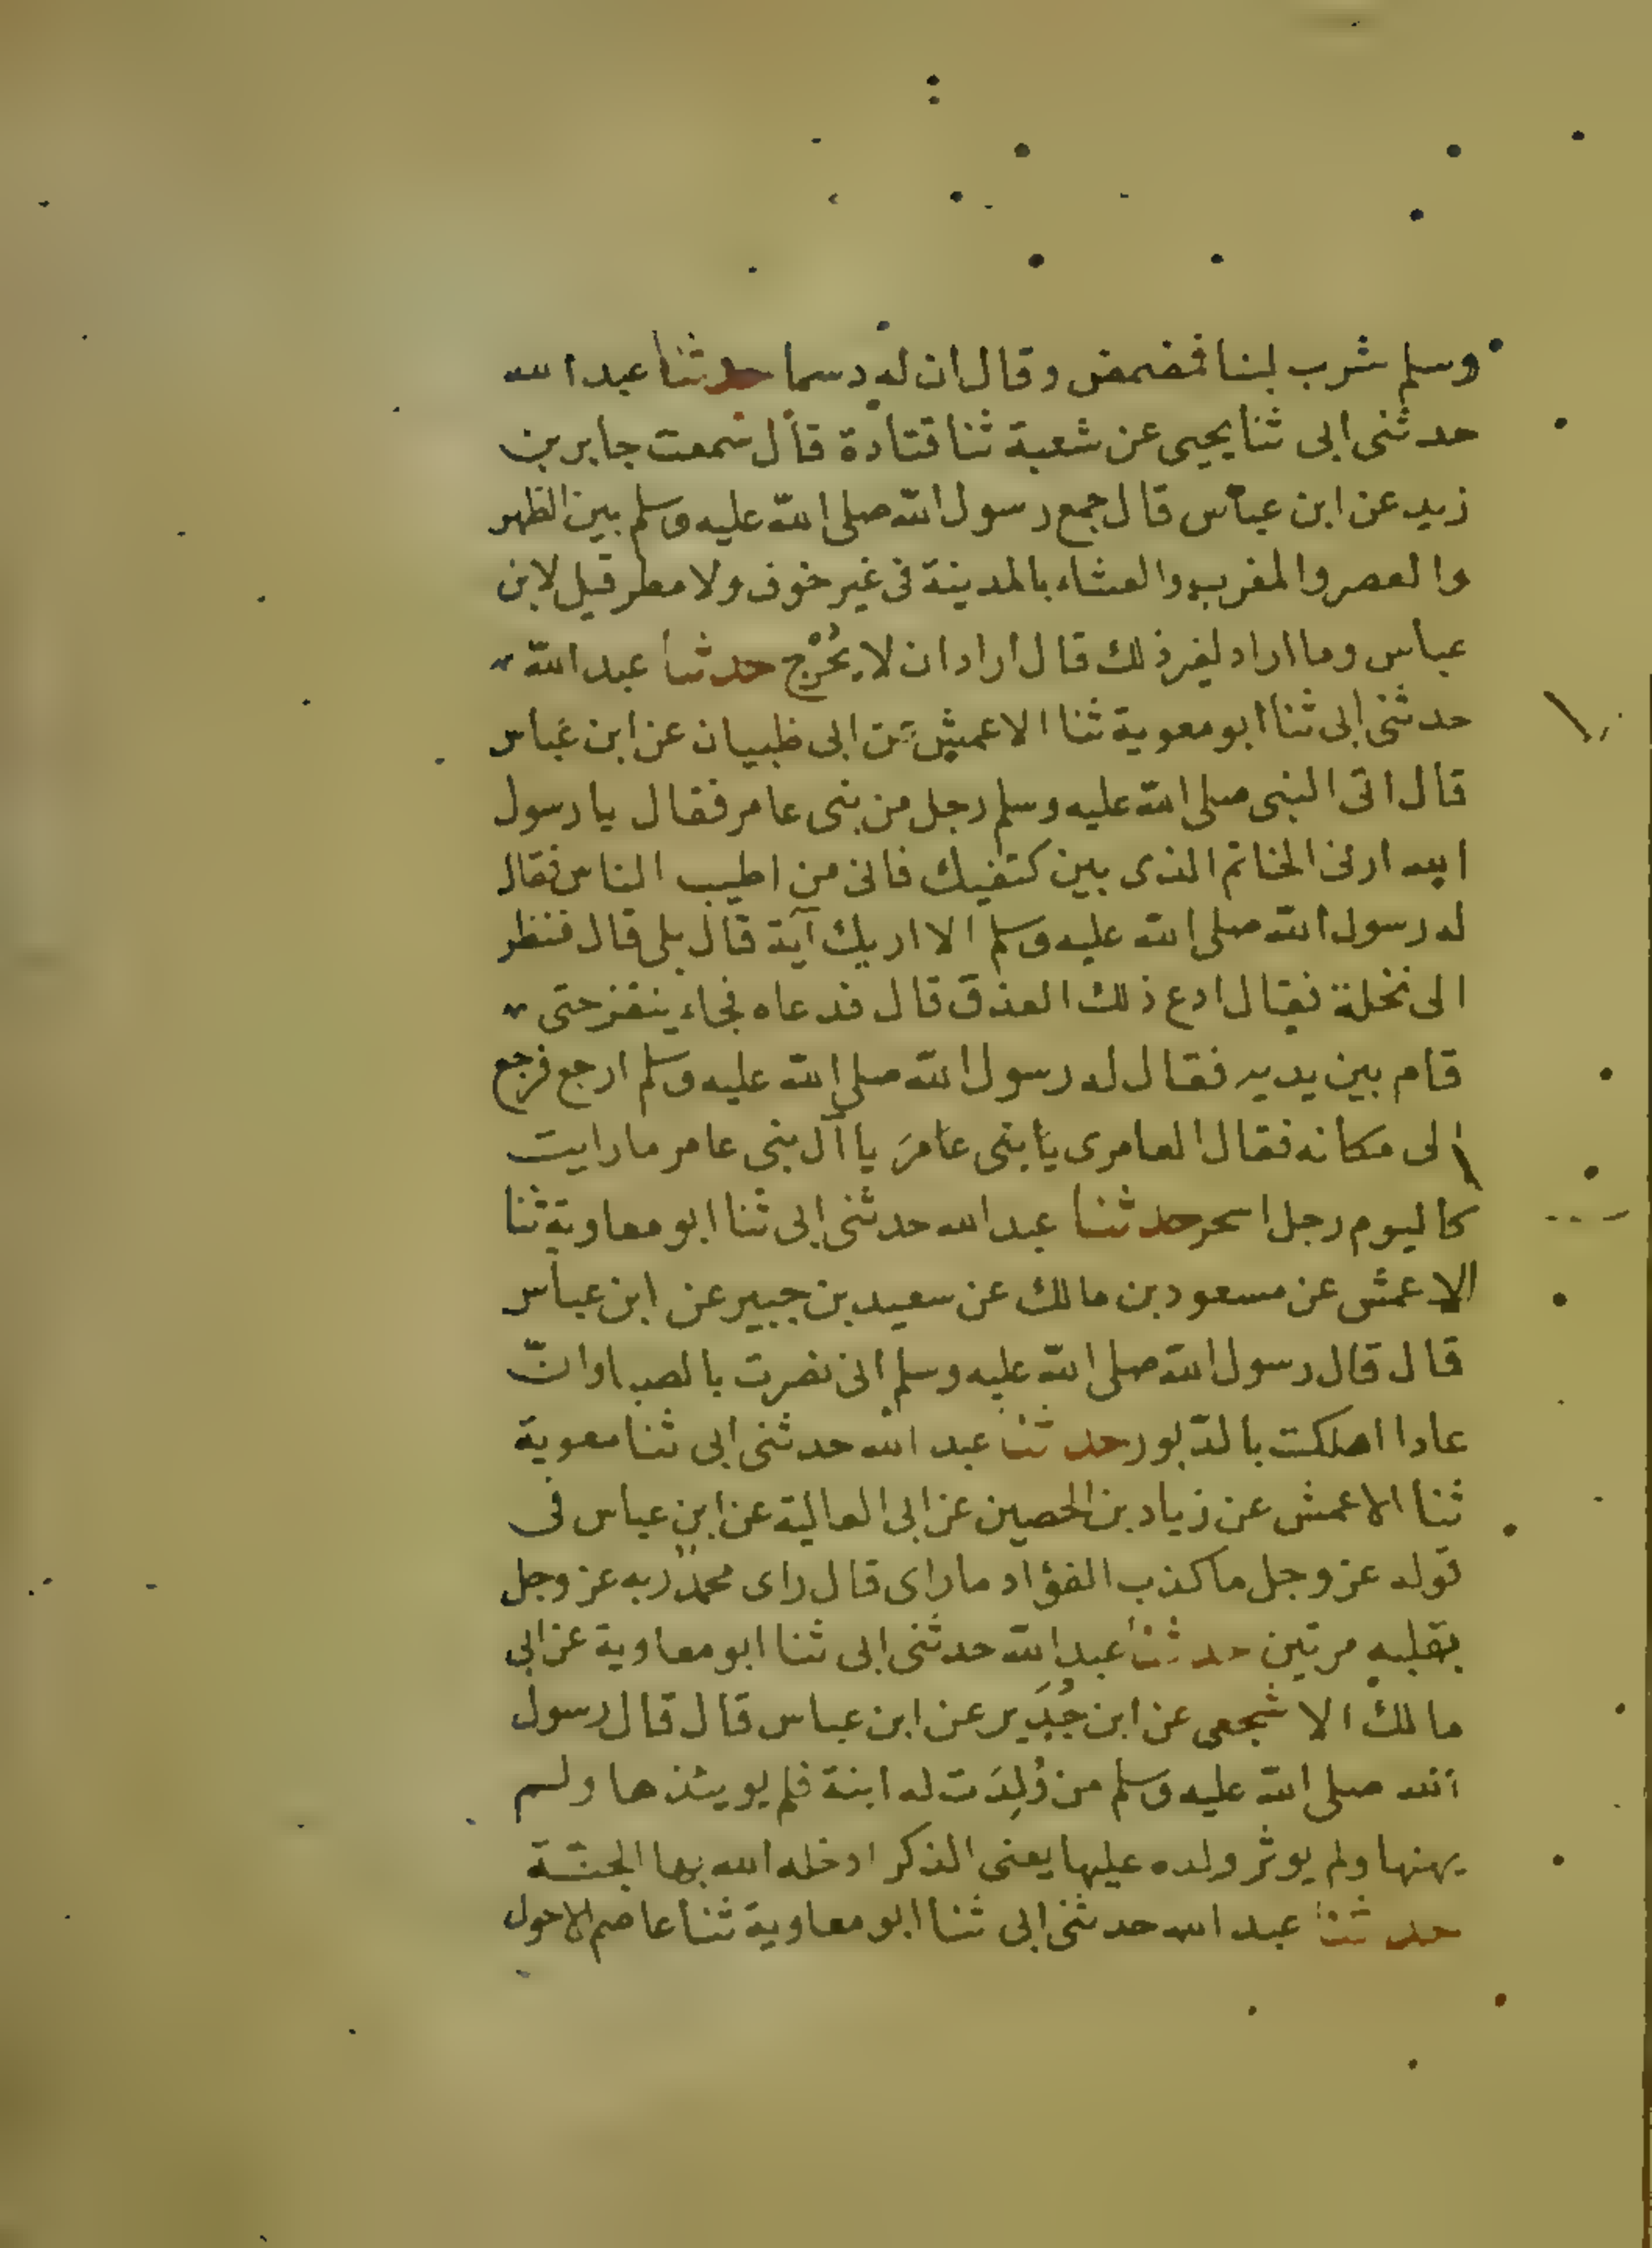 وسلم شرب لبنا فمضمض وقال ان له دسما حدثنا عبد الله
حدثنى ابى ثنا يحيى عن شعبة ثنا قتادة قال سمعت جابر بن
زيد عن ابن عباس قال جمع رسول الله صلى الله عليه وسلم بين الظهر
والعصر والمغرب والعشاء بالمدينة فى غير خوف ولا مطر قيل لابن
عباس وما اراد لغير ذلك قال اراد ان لا يُحْرج حدثنا عبد الله
حدثنى ابى ثنا ابو معوية ثنا الاعمش عن ابى ظبيان عن ابن عباس
قال اتى النبى صلى الله عليه وسلم رجل من بنى عامر فقال يا رسول
الله ارنى الخاتم الذى بين كتفيك فانى من اطيب الناس فقال
له رسول الله صلى الله عليه وسلم الا اريك آية قال بلى قال فنظر
الى نخلة فقال ادع ذلك العذق قال فدعاه فجاء ينقز حتى
قام بين يديه فقال له رسول الله صلى الله عليه وسلم ارجع فرجع
الى مكانه فقال العامرى يا بنى عامرَ يا آل بنى عامر ما رايت
كاليوم رجل اسحر حدثنا عبد الله حدثنى ابى ثنا ابو معاوية ثنا
الاعمش عن مسعود بن مالك عن سعيد بن جبير عن ابن عباس
قال قال رسول الله صلى الله عليه وسلم انى نصرت بالصبا وانّ
عادا اهلكت بالدّبور حدثنا عبد الله حدثنى ابى ثنا معوية
ثنا الاعمش عن زياد بن الحصين عن ابى العالية عن ابن عباس فى
قوله عز وجل ما كذب الفؤاد ما راى قال راى محمدٌ ربه عز وجل
بقلبه مرتين حدثنا عبد الله حدثنى ابى ثنا ابو معاوية عن ابى
مالك الاشجعى عن ابن جُدَير عن ابن عباس قال قال رسول
الله صلى الله عليه وسلم من وُلِدَت له ابنة فلم يويئذها ولم
يهنها ولم يوثر ولده عليها يعنى الذكر ادخله الله بها الجنّة
حدثنا عبد الله حدثنى ابى ثنا ابو معاوية ثنا عاصم الاحول